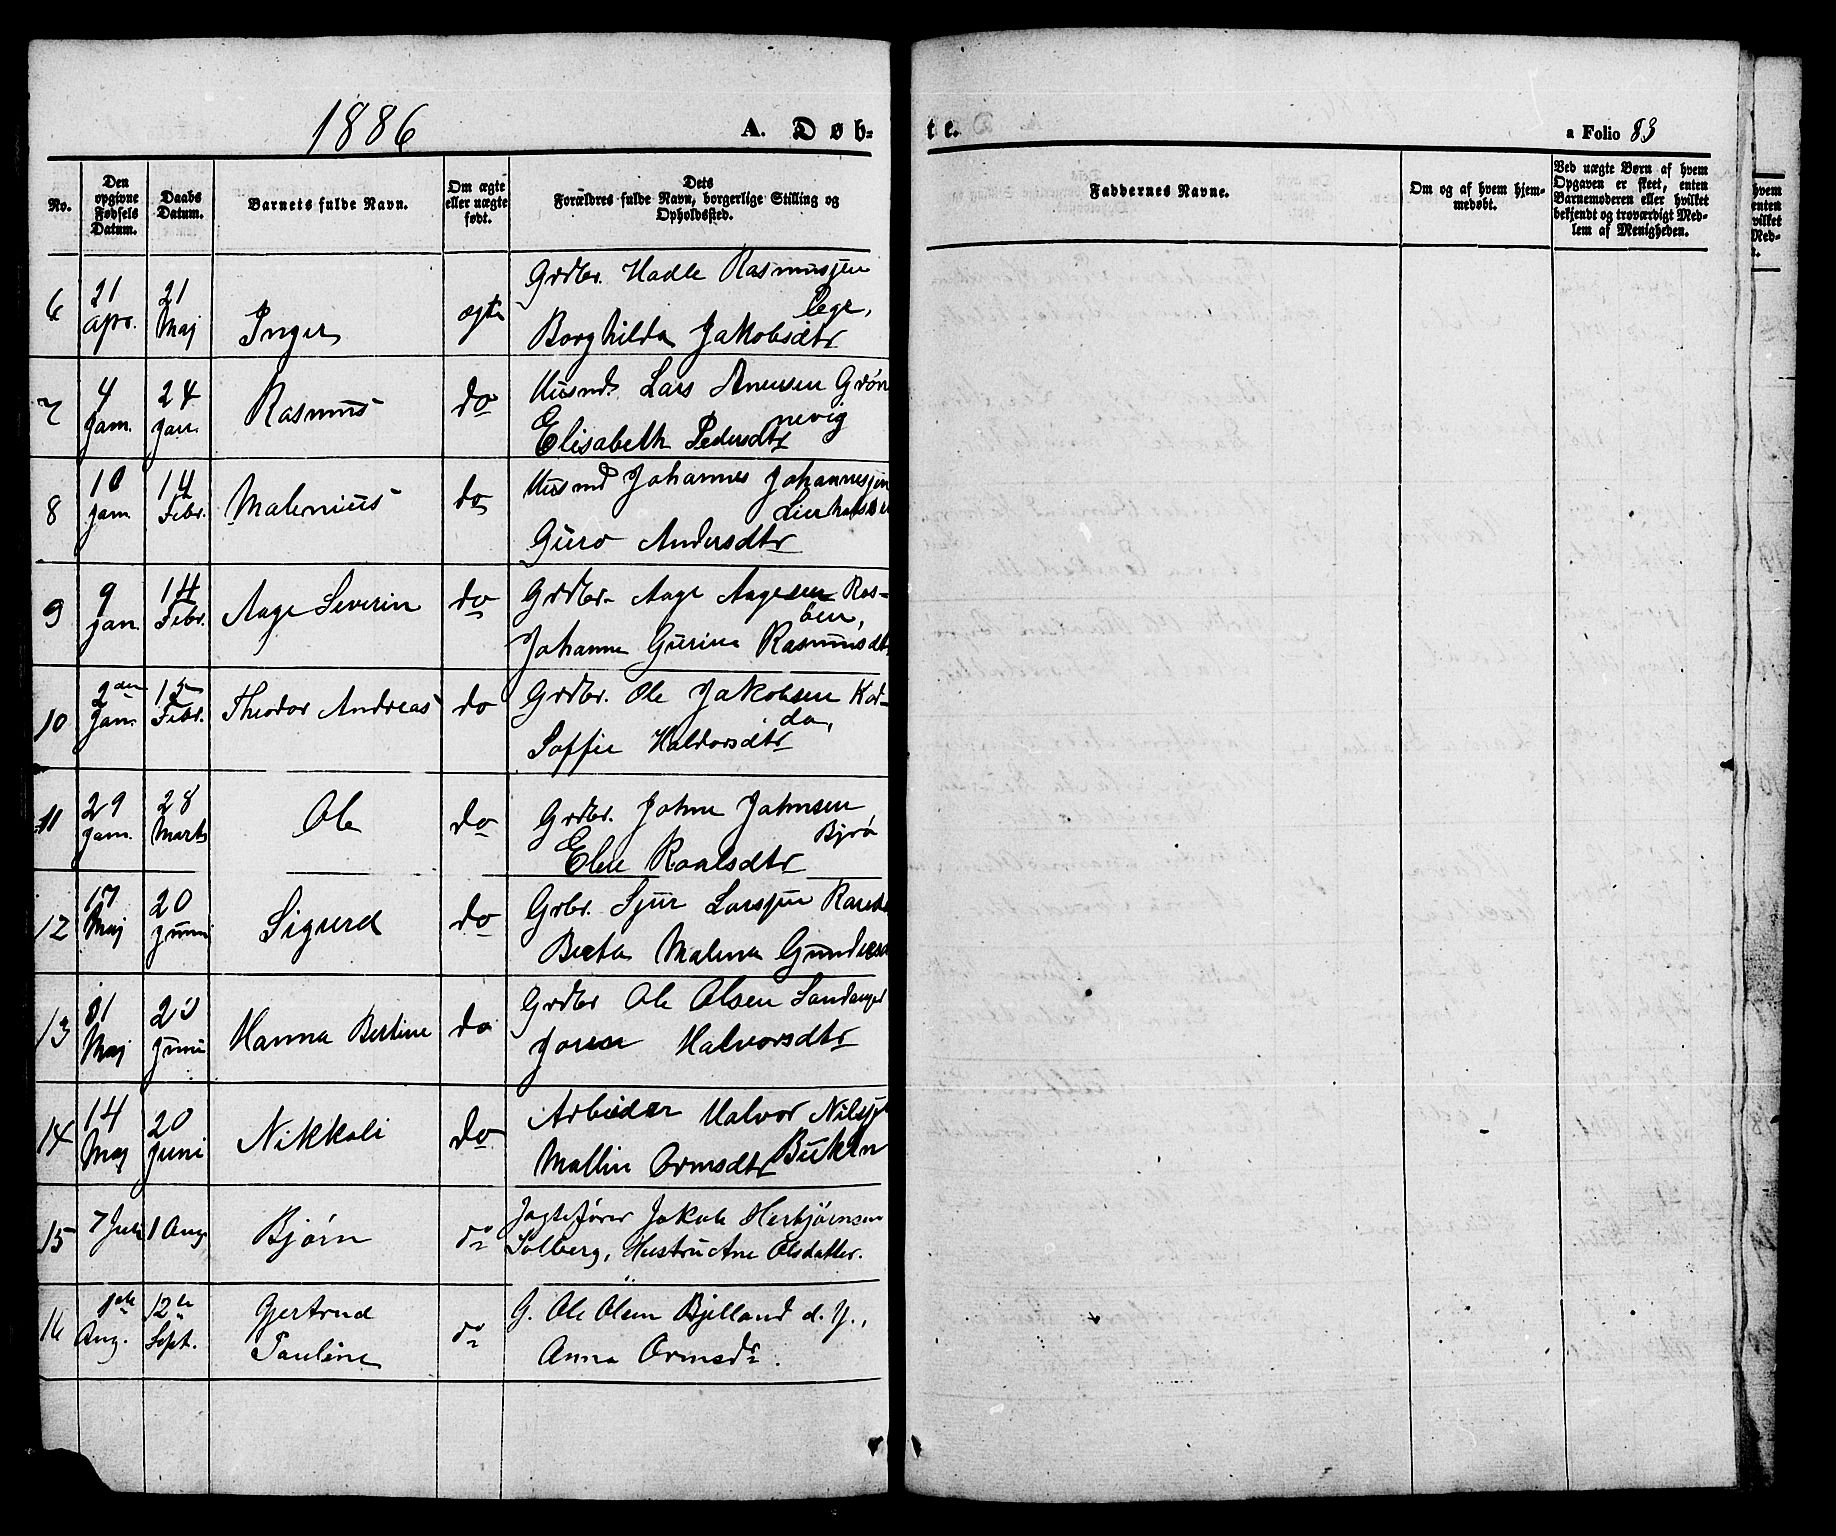 1886
A. Døb-
te.
a Folio 83
No.
Den opgivne Fødsels Datum.
Daabs Datum.
Barnets fulde Navn.
Om ægte eller uægte født.
Dets Forældres fulde Navn, borgerlige Stilling og Opholdssted.
Faddernes Navne.
Om og af hvem hjemmedøbt.
Ved uægte Børn af hvem Opgaven er skeet, enten Barnemoderen eller hvilket bekjendt og troværdigt Medlem af Menigheden.
6 21 Apr. 21 Maj Inger ægte Grdbr. Hadle Rasmussen
Borghilda Jakobsdtr
7 4 Jan. 24 Jan. Rasmus do Husmd. Lars Anensen Grøn
nevig
Elisabeth Pedersdtr
8 10 Jan 14 Febr. Malenius do Husmd Johannes Johannesjen
Guro Andersdtr
9 9 Jan. 14 Febr. Aage Severin do Grdbr. Aage Aagesen Ros-
Johanne Gurine Rasmusdtr
10 2den Jan. Febr. Theodor Andreas do Grdbr. Ole Jakobsen
Soffie Haldorsdtr
11 29 Jan. 28 Marts Ole do Grdbr. Johne Johnsen
Bjrø
Elen Roalsdtr
12 17 Maj 20 Juni Sigurd do Grbr. Sjur Larsjen
Berta Malena
13 31 Maj 20 Juni Hanna Bertine do Grdbr Ole Olsen Sandanger
Halvorsdtr
14 14 Maj 20 Juni Nikkoli do Arbieder Halvor Nilsjen
Mallin Ormsdtr Buken
15 7 Juli 1 Aug. Bjørn do Jagtefører Jakob Herbjørnsen
Solberg, Hustru Ane Olsdatter.
16 1ste Aug. 12te Sept. Gjertrud do G. Ole Olsen Bjelland d. Y.,
Pauline Anna Ormsdr.